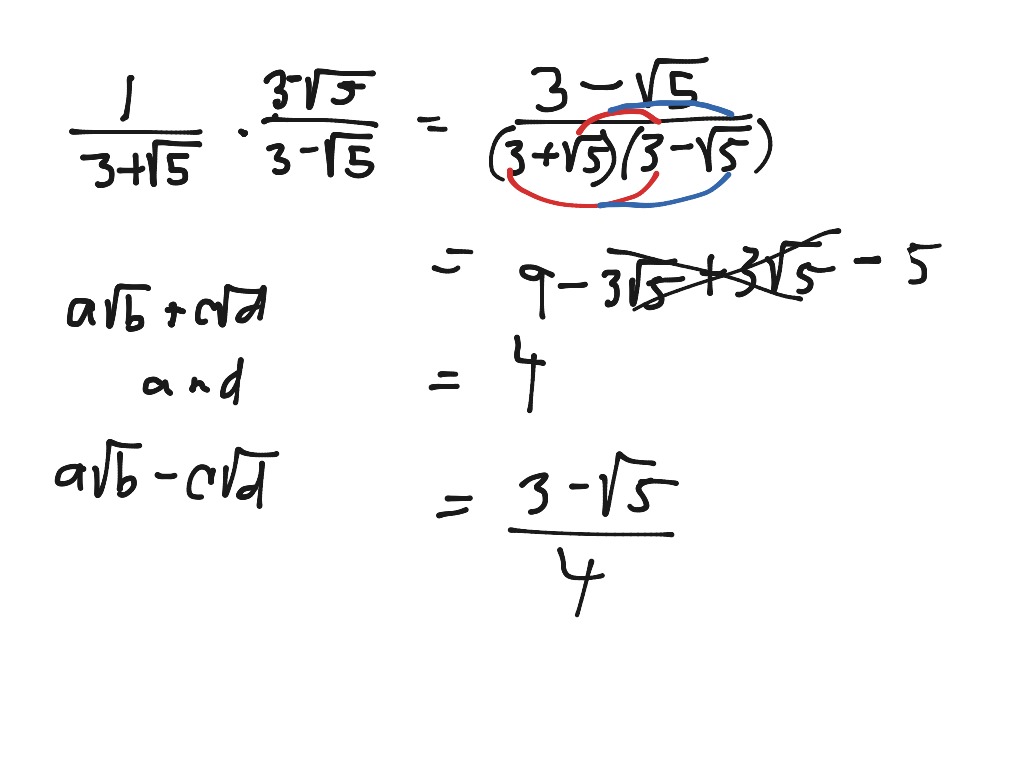 1/(3+√5) · (3-√5)/(3-√5) = (3-√5)/((3+√5)(3-√5))
= 9 - 3√5 + 3√5 - 5
a√b + c√d
and
= 4
a√b - c√d
= (3-√5)/4